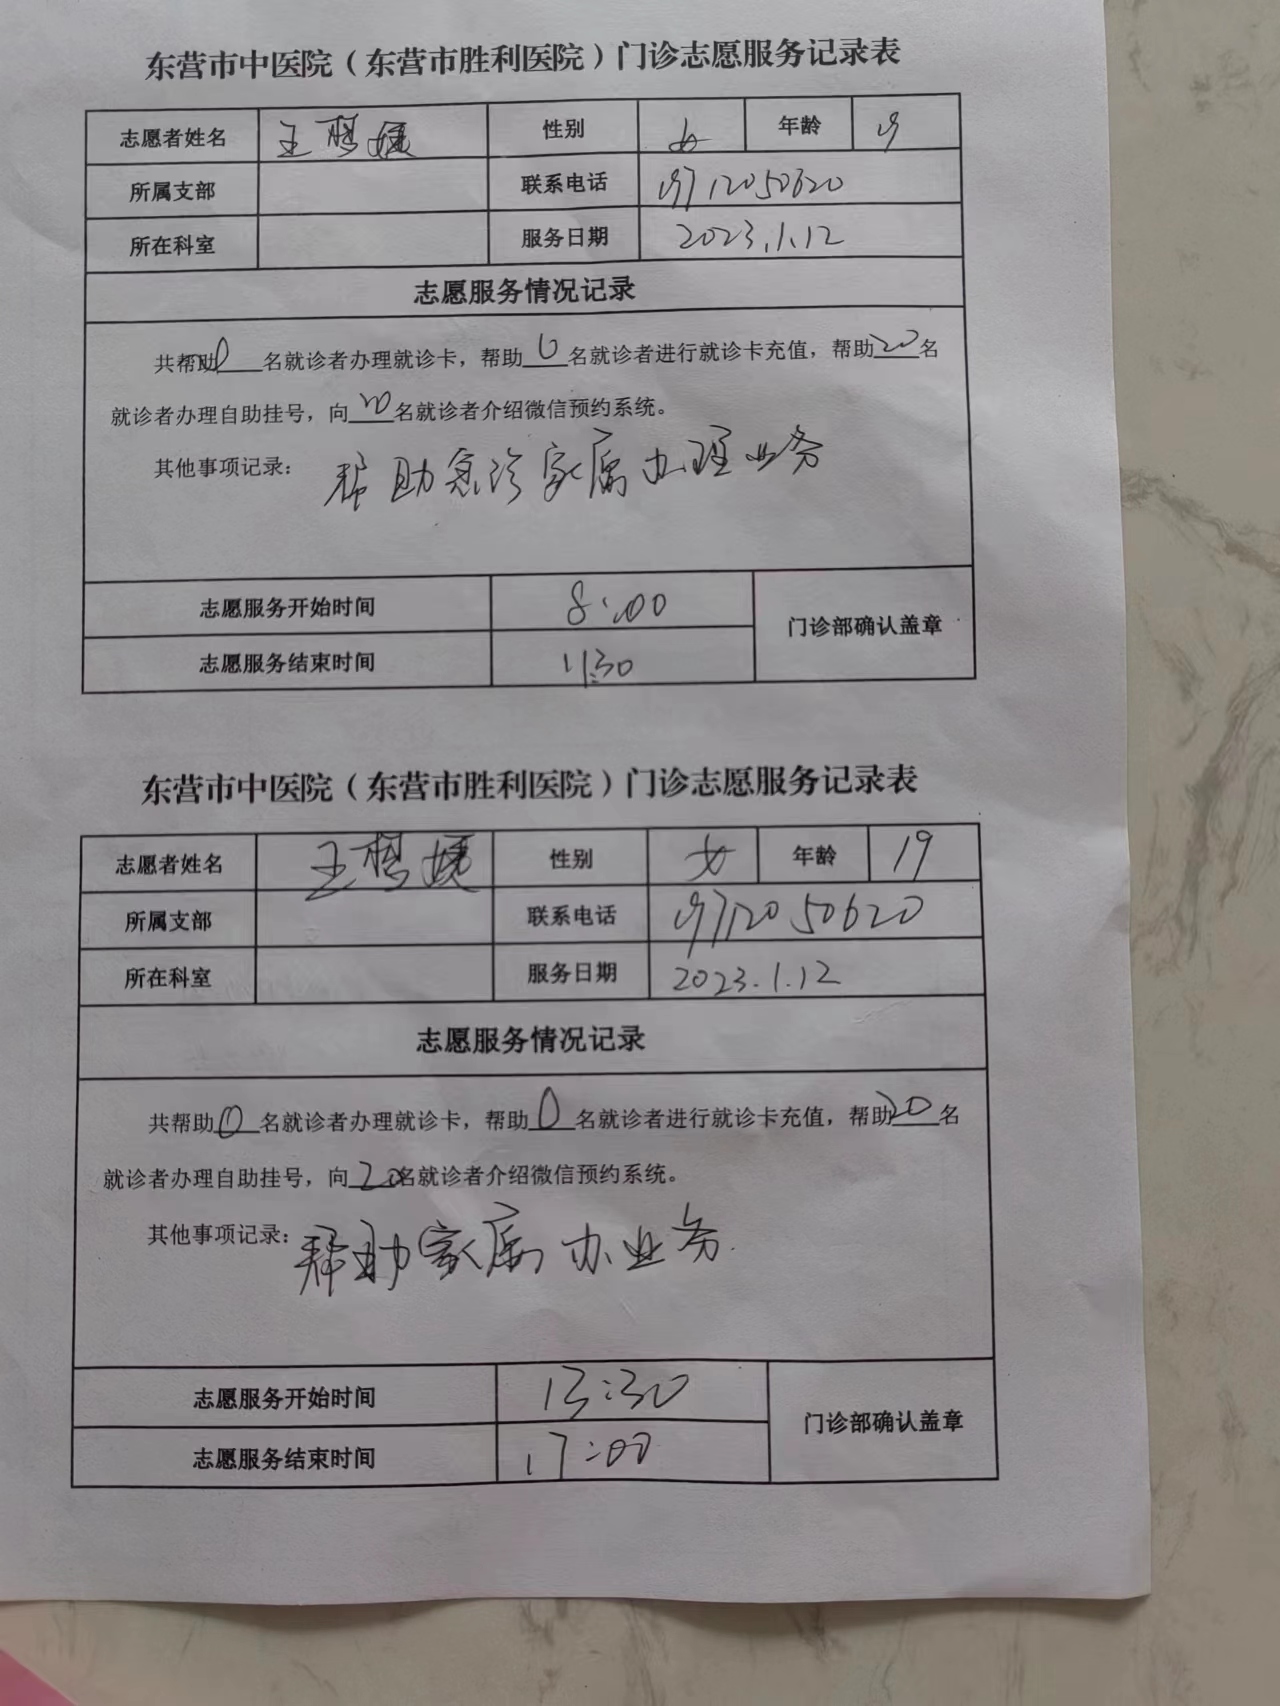 东营市中医院（东营市胜利医院）门诊志愿服务记录表
志愿者姓名 王梦婕 性别 女 年龄 19
所属支部 联系电话 19712050620
所在科室 服务日期 2023.1.12
志愿服务情况记录
共帮助0名就诊者办理就诊卡，帮助0名就诊者进行就诊卡充值，帮助20名
就诊者办理自助挂号，向20名就诊者介绍微信预约系统。
其他事项记录：帮助急诊家属办理业务
志愿服务开始时间 8:00 门诊部确认盖章
志愿服务结束时间 11:30
东营市中医院（东营市胜利医院）门诊志愿服务记录表
志愿者姓名 王梦婕 性别 女 年龄 19
所属支部 联系电话 19712050620
所在科室 服务日期 2023.1.12
志愿服务情况记录
共帮助0名就诊者办理就诊卡，帮助0名就诊者进行就诊卡充值，帮助20名
就诊者办理自助挂号，向20名就诊者介绍微信预约系统。
其他事项记录：帮助家属办业务.
志愿服务开始时间 13:30 门诊部确认盖章
志愿服务结束时间 17:00